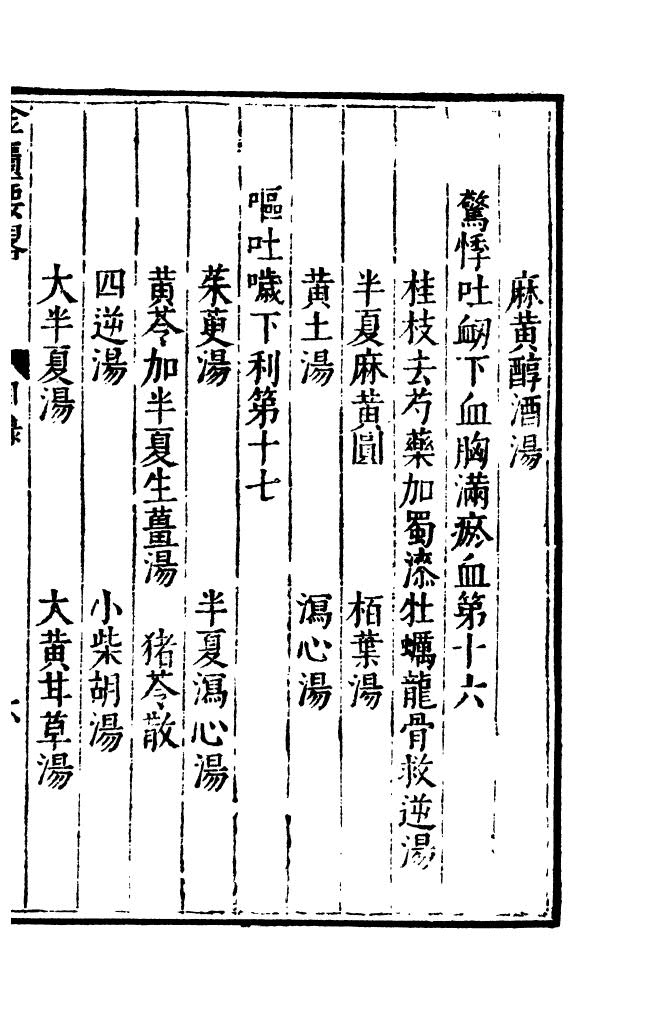 麻黄醇酒湯
驚悸吐衂下血胸滿瘀血第十六
桂枝去芍藥加蜀漆牡蠣龍骨救逆湯
半夏麻黄圓　栢葉湯
黄土湯　瀉心湯
嘔吐噦下利第十七
茱萸湯　半夏瀉心湯
黄芩加半夏生薑湯　猪苓散
四逆湯　小柴胡湯
大半夏湯　大黄甘草湯
金匱要畧　目錄　六